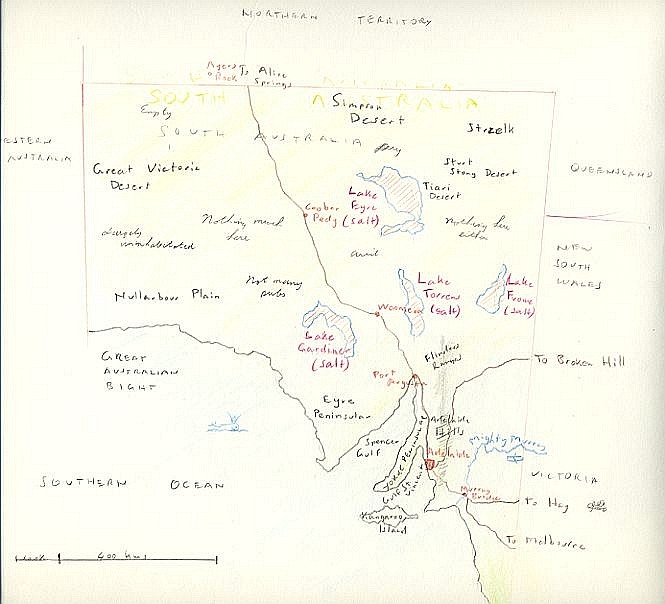 NORTHERN TERRITORY
Ayers
Rock
To Alice
Springs
SOUTH AUSTRALIA
SOUTH AUSTRALIA
Empty
Simpson
Desert
Strzelk
WESTERN
AUSTRALIA
Great Victoria
Desert
Sturt
Stony Desert
Tiari
Desert
QUEENSLAND
Lake
Eyre
(salt)
Coober
Pedy
Largely
uninhabitated
Nothing much
here
Nothing here
either
NEW
SOUTH
WALES
Nullarbour Plain
Not many
pubs
Woomera
Lake
Torrens
(salt)
Lake
Frome
(salt)
Lake
Gardiner
(salt)
GREAT
AUSTRALIAN
BIGHT
Flinders
Ranges
To Broken Hill
Port
Augusta
Eyre
Peninsular
Spencer
Gulf
YORKE PENINSULAR
Gulf St.
Vincent
Adelaide
Hills
Adelaide
Mighty Murray
Murray
Bridge
VICTORIA
SOUTHERN OCEAN
Kangaroo
Island
To Hay
To Melbourne
400 kms